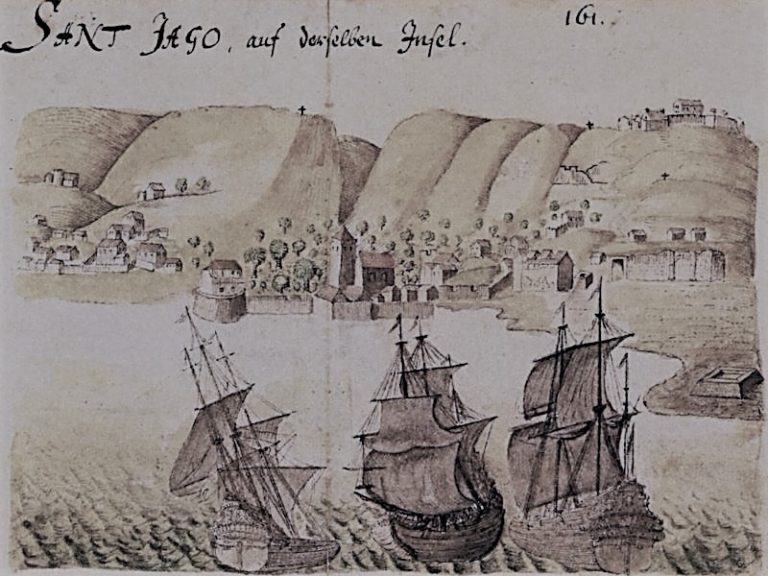 SANT JAGO, auf derselben Insel.
161.